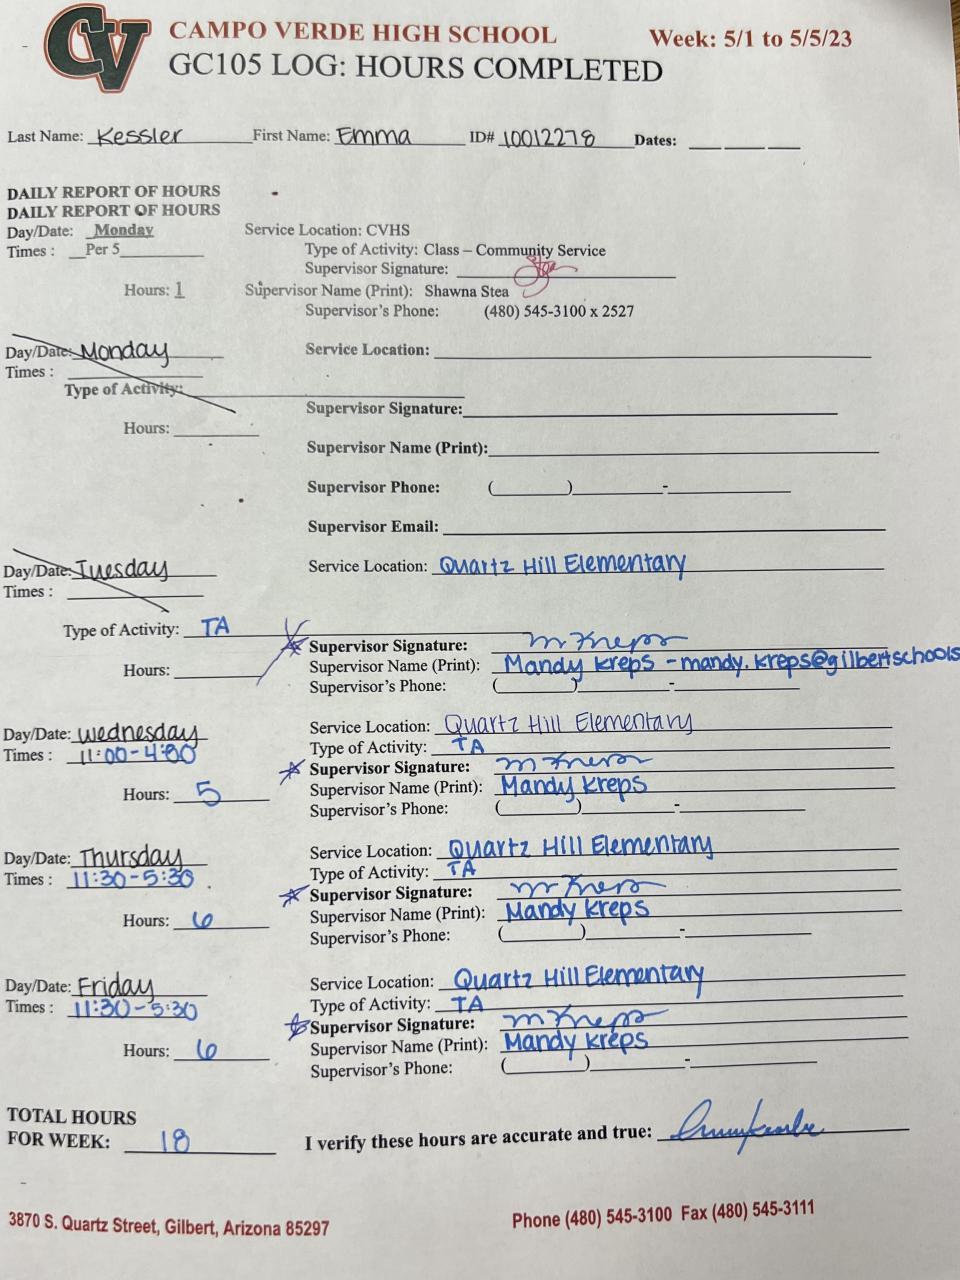 CV CAMPO VERDE HIGH SCHOOL Week: 5/1 to 5/5/23
GC105 LOG: HOURS COMPLETED
Last Name: Kessler First Name: Emma ID# 10012278 Dates: ___ ___ ___
DAILY REPORT OF HOURS
DAILY REPORT OF HOURS
Day/Date: Monday Service Location: CVHS
Times : Per 5 Type of Activity: Class – Community Service
Supervisor Signature:
Hours: 1 Supervisor Name (Print): Shawna Stea
Supervisor's Phone: (480) 545-3100 x 2527
Day/Date: Monday Service Location:
Times :
Type of Activity:
Supervisor Signature:
Hours:
Supervisor Name (Print):
Supervisor Phone: ( ) -
Supervisor Email:
Day/Date: Tuesday Service Location: Quartz Hill Elementary
Times :
Type of Activity: TA
Supervisor Signature: M Kreps
Hours: Supervisor Name (Print): Mandy Kreps - mandy.kreps@gilbertschools
Supervisor's Phone: ( ) -
Day/Date: Wednesday Service Location: Quartz Hill Elementary
Times : 11:00-4:00 Type of Activity: TA
Supervisor Signature: M Kreps
Hours: 5 Supervisor Name (Print): Mandy Kreps
Supervisor's Phone: ( ) -
Day/Date: Thursday Service Location: Quartz Hill Elementary
Times : 11:30-5:30 Type of Activity: TA
Supervisor Signature: M Kreps
Hours: 6 Supervisor Name (Print): Mandy Kreps
Supervisor's Phone: ( ) -
Day/Date: Friday Service Location: Quartz Hill Elementary
Times : 11:30-5:30 Type of Activity: TA
Supervisor Signature: M Kreps
Hours: 6 Supervisor Name (Print): Mandy Kreps
Supervisor's Phone: ( ) -
TOTAL HOURS
FOR WEEK: 18 I verify these hours are accurate and true:
3870 S. Quartz Street, Gilbert, Arizona 85297 Phone (480) 545-3100 Fax (480) 545-3111